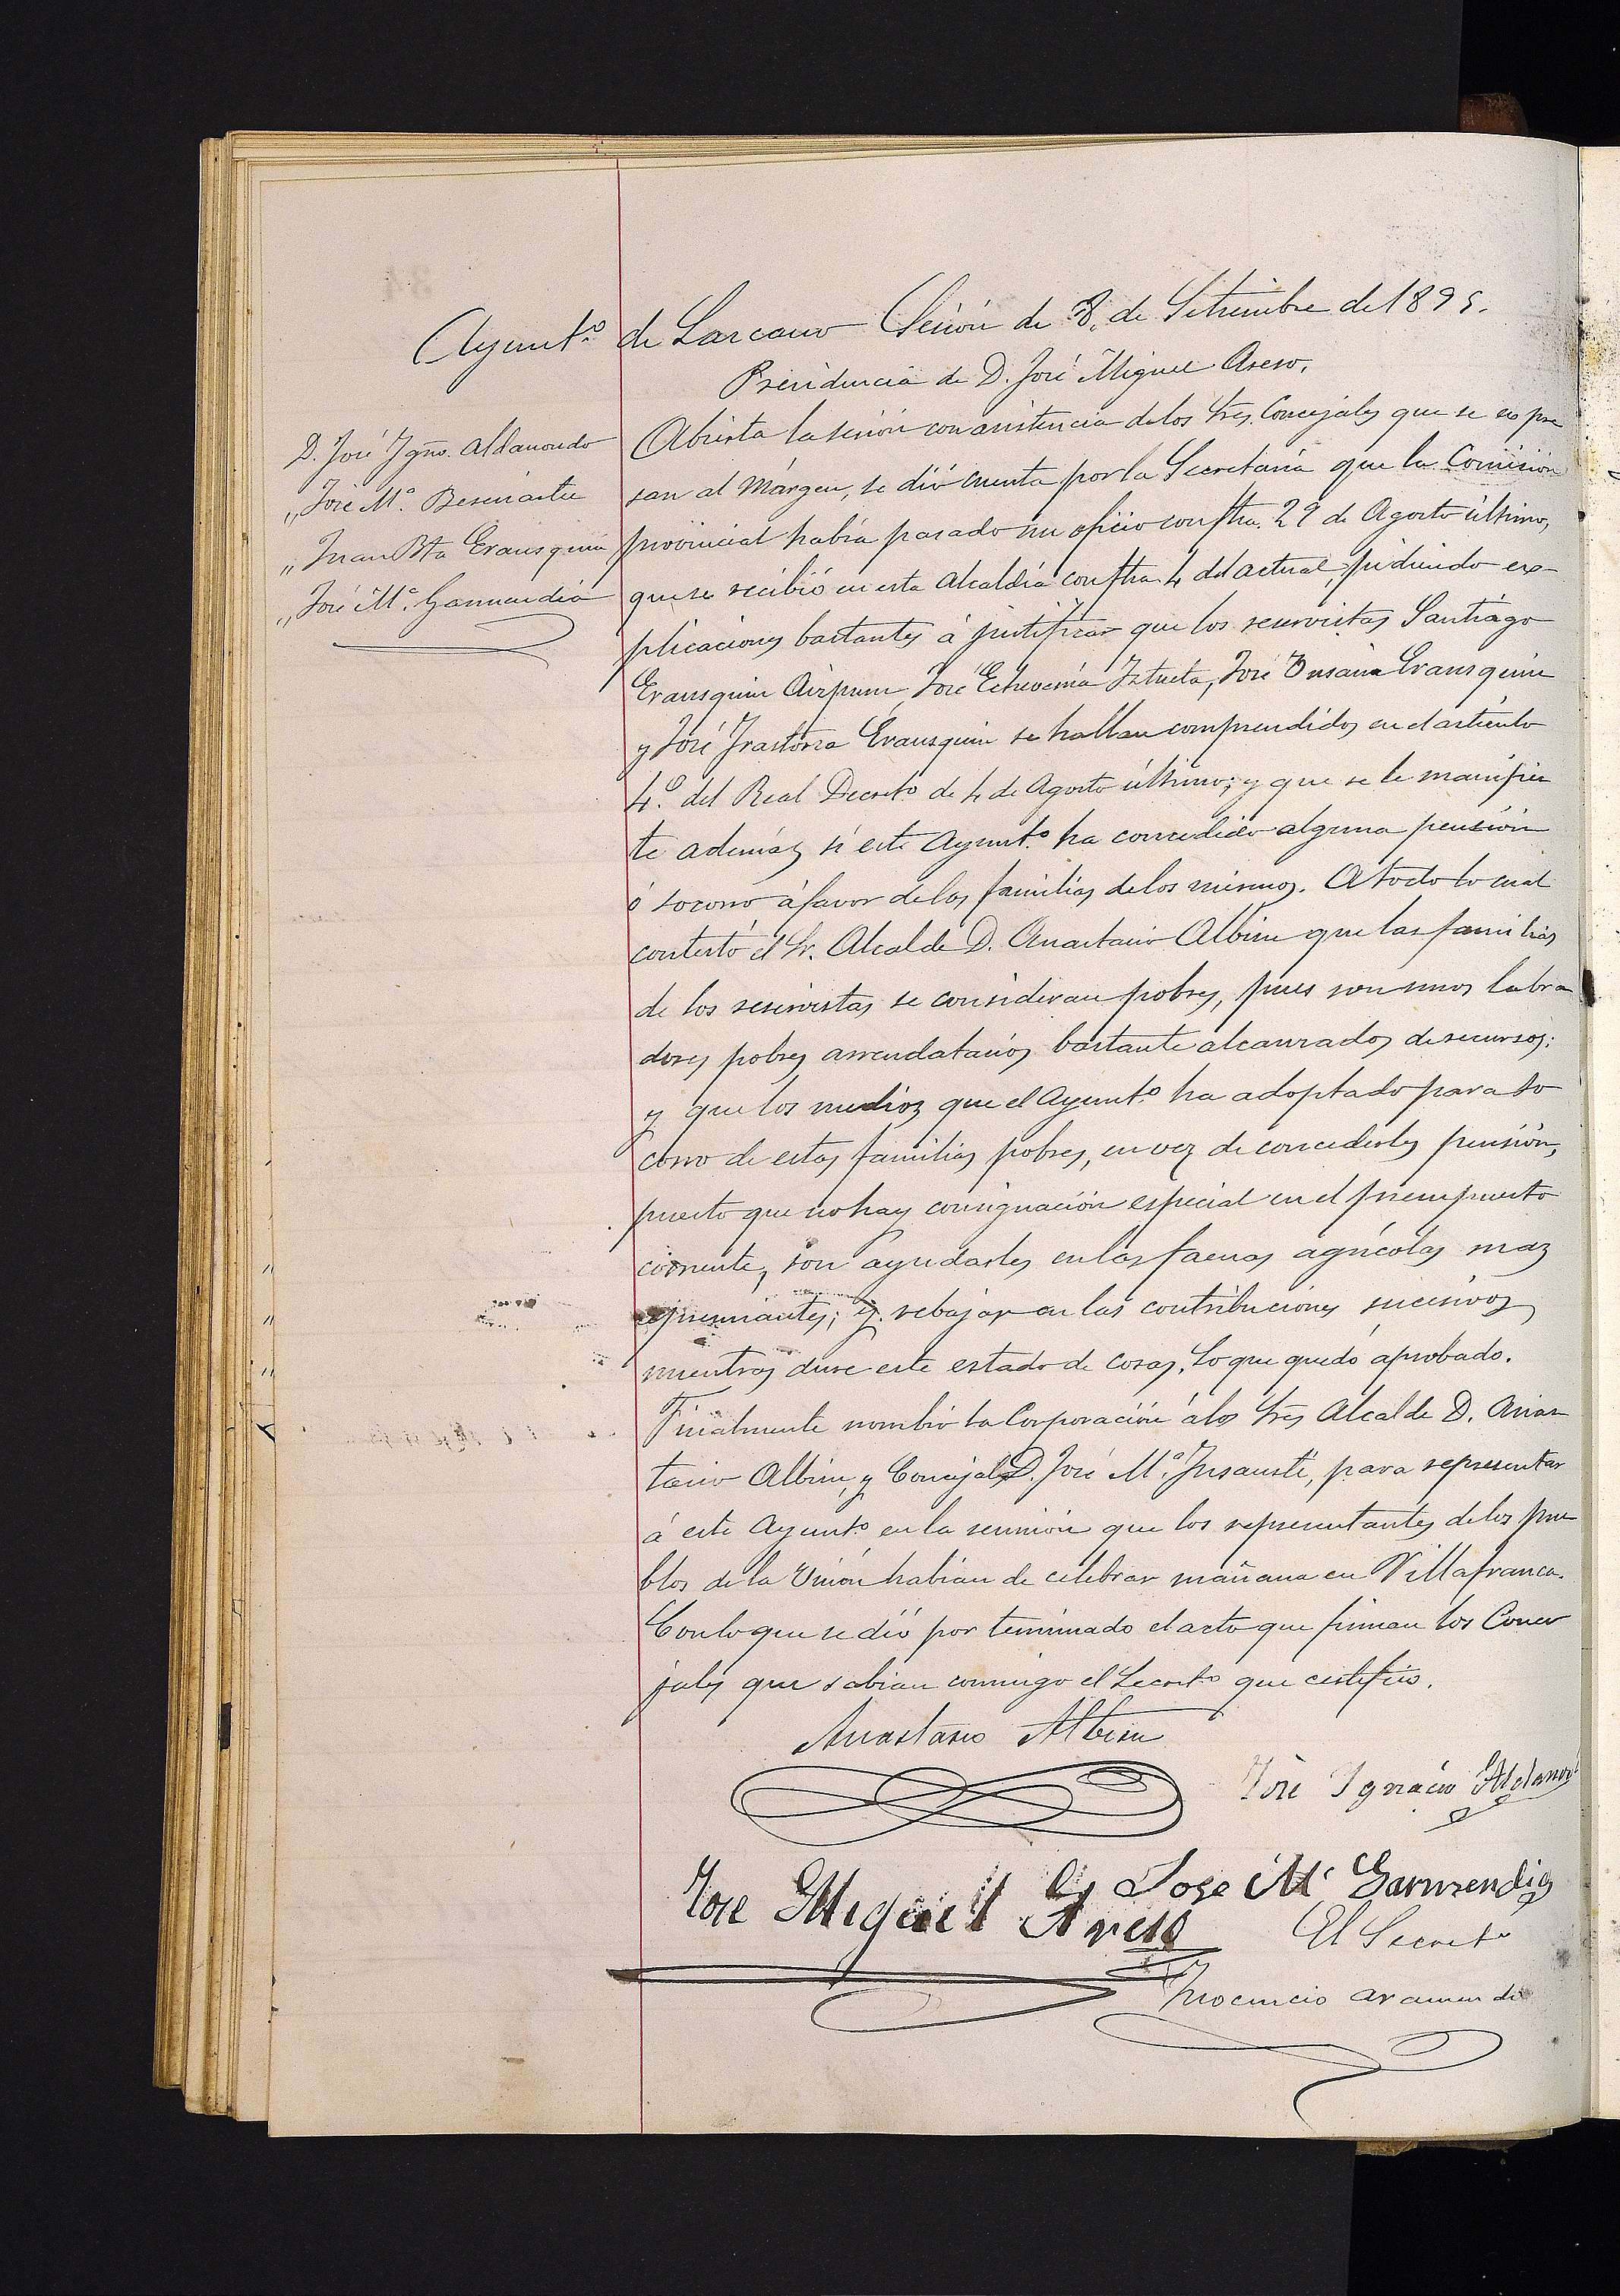 Ayunt.º de Larcano Sesión de 8, de Setiembre de 1895.
Presidencia de D. José Miguel Areso.
D. José Ygnº. Aldanondo
„ José Mª. Beseiartu
„ Juan Bta Erausquin
„ José Mª. Garmendia
Abierta la sesión con asistencia de los Sres. Concejales que se expre
san al márgen, se dió cuenta por la Secretaría que la Comisión
provincial había pasado un oficio con fha. 29 de Agosto último,
que se recibió en esta Alcaldía con fha 4 del actual, pidiendo ex-
plicaciones bastantes á justificar que los reservistas Santiago
Erausquin Aizpuru, José Echeverria Iztueta, José Insausti Erausquin
y José Irastorza Erausquin se hallan comprendidos en el artículo
4.º del Real Decreto de 4 de Agosto último; y que se le manifies
te además si este Ayunt.º ha concedido alguna pensión
ó socorro á favor de las familias de los mismos. A todo lo cual
contestó el Sr. Alcalde D. Anastasio Albisu que las familias
de los reservistas se consideran pobres, pues son unos labra
dores pobres arrendatarios bastante alcanzados de recursos:
y que los medios que el Ayunt.º ha adoptado para so
corro de estas familias pobres, en vez de concederles pensión,
puesto que no hay consignación especial en el presupuesto
corriente, son ayudarles en las faenas agrícolas mas
apremiantes; y rebajar en las contribuciones sucesivas
mientras dure este estado de cosas. Lo que quedó aprobado.
Finalmente nombró la Corporación á los Sres Alcalde D. Anas
tasio Albisu, y Concejal D. José Mª. Insausti, para representar
á este Ayunt.º en la reunión que los representantes de los pue
blos de la Unión habían de celebrar mañana en Villafranca.
Con lo que se dió por terminado el acto que firman los Conce
jales que sabían conmigo el Secret.º que certifico.
Anastasio Albisu
José Ignacio Aldanon
José Miguel Areso
Jose Mª Garmendia
El Secretº
Inocencio Aramendi